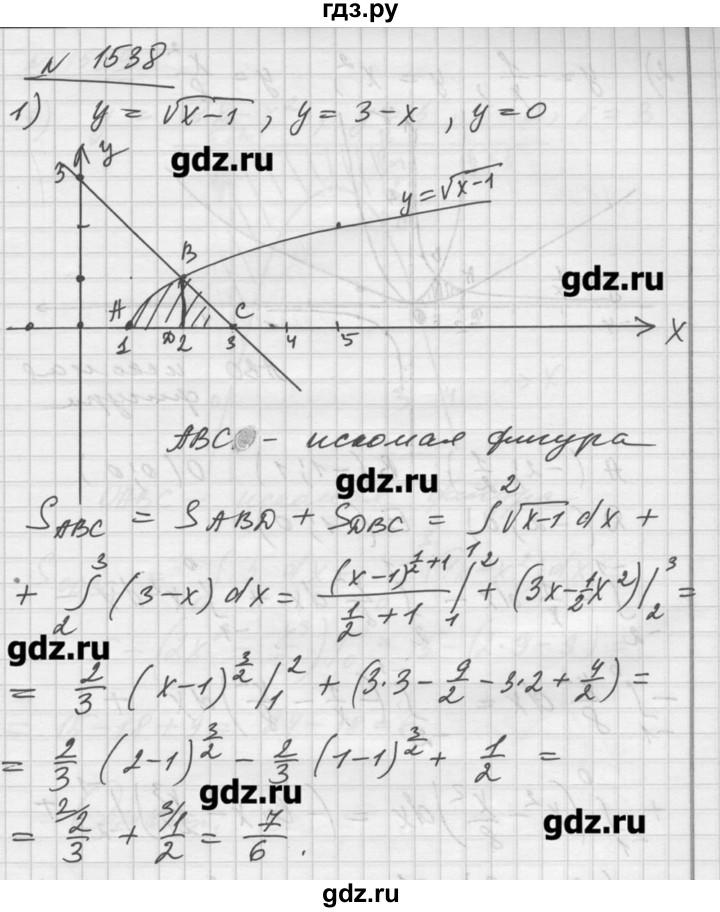 гдз.ру
N 1538
1) y = √x-1 , y = 3-x , y = 0
gdz.ru
3 y
y = √x-1
B
gdz.ru
A C
1 D 2 3 4 5 X
ABC - искомая фигура
gdz.ru
S_ABC = S_ABD + S_DBC = ∫₁² √x-1 dx +
+ ∫₂³ (3-x) dx = (x-1)^(1/2+1) / (1/2+1) |₁² + (3x - 1/2 x²) |₂³ =
gdz.ru
= 2/3 (x-1)^(3/2) |₁² + (3·3 - 9/2 - 3·2 + 4/2) =
= 2/3 (2-1)^(3/2) - 2/3 (1-1)^(3/2) + 1/2 =
gdz.ru
= ²⁄ 2/3 + ³⁄ 1/2 = 7/6 .
gdz.ru
gdz.ru